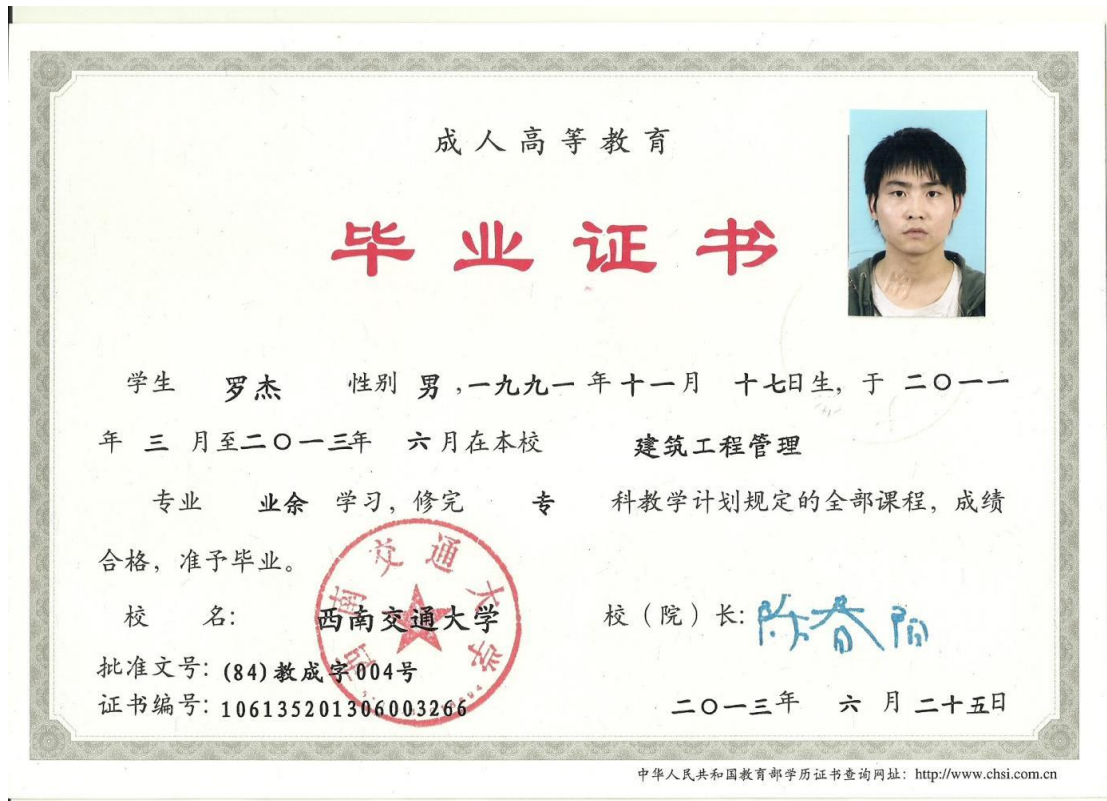 成人高等教育
毕业证书
学生 罗杰 性别 男 ,一九九一 年 十一月 十七日生, 于 二〇一一
年 三 月至二〇一三年 六月在本校 建筑工程管理
专业 业余 学习, 修完 专 科教学计划规定的全部课程, 成绩
合格, 准予毕业。
校 名: 西南交通大学 校(院)长:
西南交通大学
批准文号: (84)教成字004号
证书编号: 106135201306003266 二〇一三年 六 月 二十五日
中华人民共和国教育部学历证书查询网址: http://www.chsi.com.cn